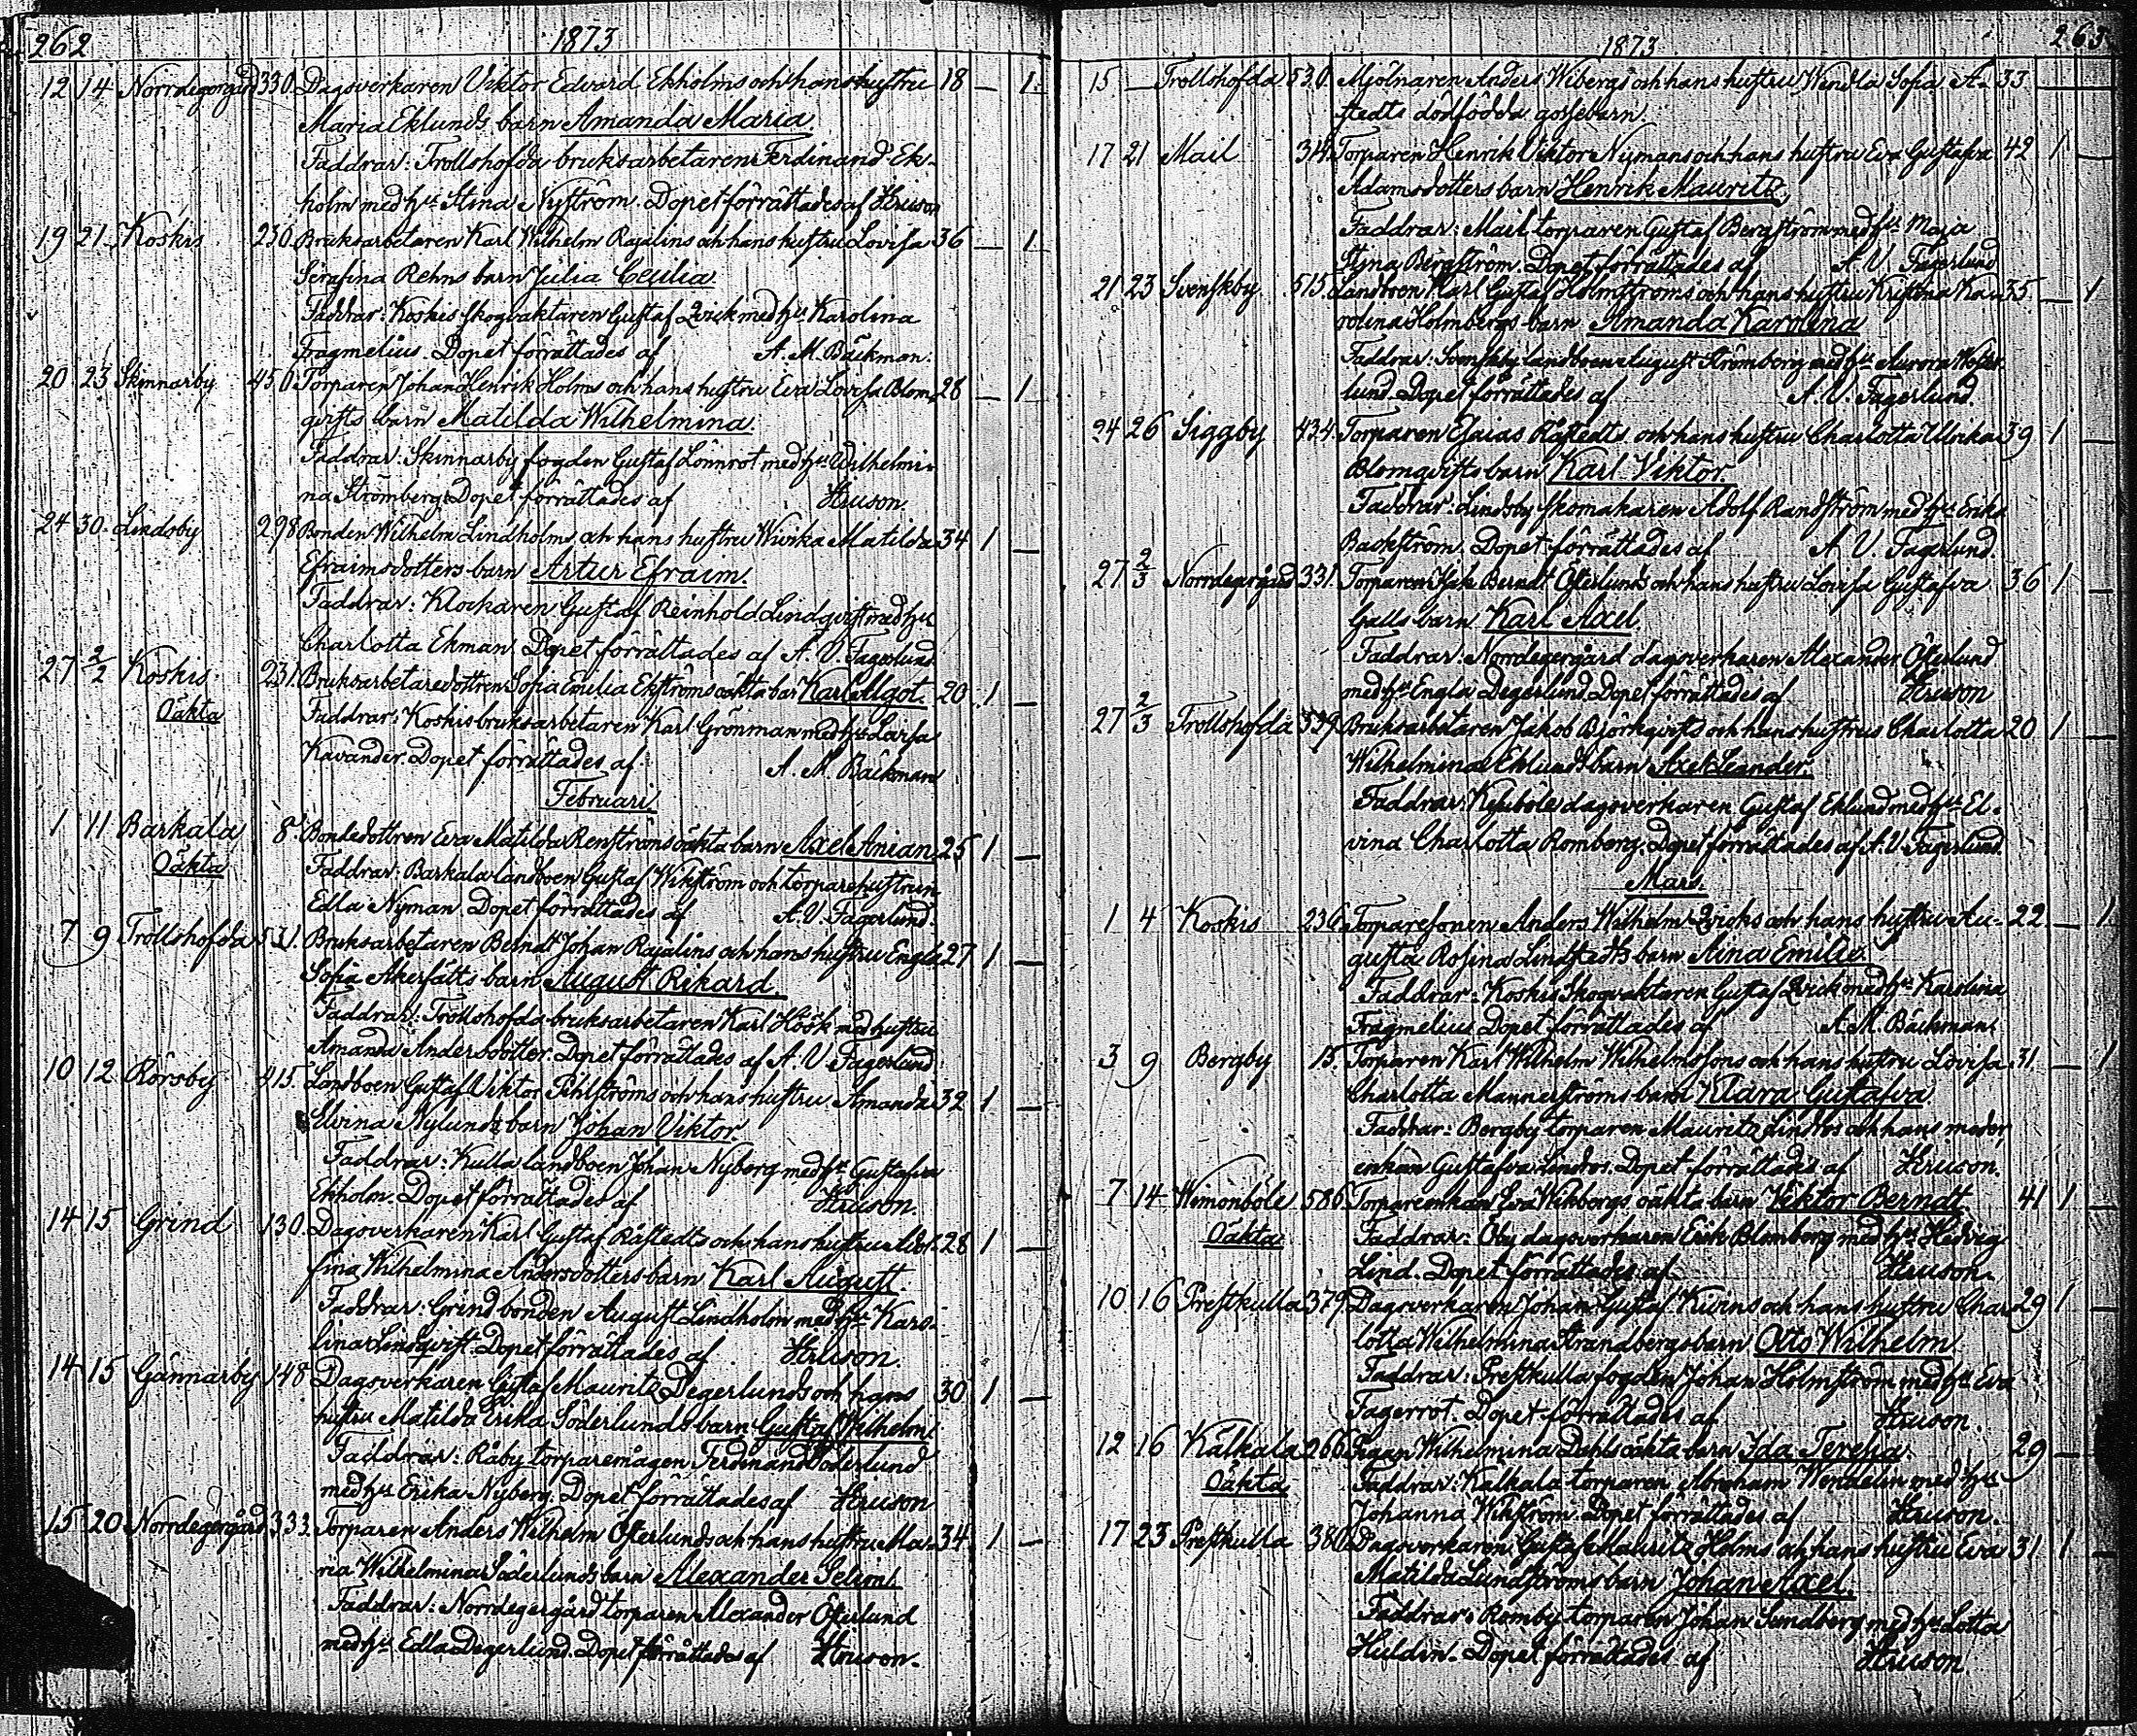 262 1873
12 14 Norrdegergård 330. Dagsverkaren Viktor Edvard Ekholms och hans hustru 18 — 1.
Maria Eklunds barn Amanda Maria.
Faddrar: Trollshofda bruksarbetaren Ferdinand Ek-
holm med hu Stina Nyström. Dopet förrättades af
19 21 Koskis 230. Bruksarbetaren Karl Wilhelm Rajalins och hans hustru Lovisa 36 — 1
Serafina Rehns barn Julia Cecilia.
Faddrar: Koskis skogvaktaren Gustaf Qvick med hu Karolina
Fragmelius. Dopet förrättades af A. M. Bäckman.
20 23 Skinnarby 450. Torparen Johan Henrik Holms och hans hustru Eva Lovisa Blom- 28 — 1
qvists barn Matilda Wilhelmina.
Faddrar: Skinnarby fogden Gustaf Lönnrot med hu Wilhelmi-
na Strömberg. Dopet förrättades af
24 30. Lindsby 298 Bonden Wilhelm Lindholms och hans hustru Matilda 34 1 —
Efraimsdotters barn Artur Efraim.
Faddrar: Klockaren Gustaf Reinhold Lindqvist med hu
Charlotta Ekman. Dopet förrättades af A. V. Fagerlund
27 2/2 Koskis 231. Bruksarbetaredottren Sofia Emelia Ekströms oäkta bar Karl Algot. 20. 1 —
Oäkta Faddrar: Koskis bruksarbetaren Karl Grönman med hu Lovisa
Kavander. Dopet förrättades af A. M. Bäckman
Februari.
1 11 Barkala 8. Bondedottren Eva Matilda Renströms oäkta barn Axel Anian. 25 1 —
Oäkta Faddrar: Barkala landboen Gustaf Wikström och torparehustrun
Edla Nyman. Dopet förrättades af A. V. Fagerlund.
7 9 Trollshofda 531. Bruksarbetaren Berndt Johan Rajalins och hans hustru Engla 27 1 —
Sofia Åkerfälts barn August Rikard.
Faddrar: Trollshofda bruksarbetaren Karl Höök med hustru
Amanda Andersdotter. Dopet förrättades af A. V. Fagerlund
10 12 Rörsby 415. Landboen Gustaf Viktor Pihlströms och hans hustru Amanda 32 1 —
Elvina Nylunds barn Johan Viktor.
Faddrar: Kulla landboen Johan Nyberg med hu Gustafva
Ekholm. Dopet förrättades af
14 15 Grind 130. Dagsverkaren Karl Gustaf Råstedts och hans hustru Adol- 28 1 —
fina Wilhelmina Andersdotters barn Karl August.
Faddrar: Grind bonden August Lindholm med hu Karo-
lina Lindqvist. Dopet förrättades af
14 15 Gännarby 148 Dagsverkaren Gustaf Mauritz Degerlunds och hans 30 1 —
hustru Matilda Erika Söderlunds barn Gustaf Wilhelm.
Faddrar: Råby torparemågen Ferdinand Söderlund
med hu Erika Nyberg. Dopet förrättades af
15 20 Norrdegergård 333. Torparen Anders Wilhelm Österlunds och hans hustru Ma- 34. 1 —
ria Wilhelmina Söderlunds barn Alexander Selim.
Faddrar: Norrdegergård torparen Alexander Österlund
med hu Edla Degerlund. Dopet förrättades af
1873 263
15 — Trollshofda 530. Mjölnaren Anders Wibergs och hans hustru Wendla Sofia Å- 33
stedts dödfödda gossebarn.
17 21 Mail 314. Torparen Henrik Viktor Nymans och hans hustru Eva Gustafva 42 1 —
Adamsdotters barn Henrik Mauritz.
Faddrar: Mail torparen Gustaf Bergström med hu Maja
Stina Bergström. Dopet förrättades af A. V. Fagerlund
21 23 Svenskby 515. Landboen Karl Gustaf Holmströms och hans hustru Kristina Ka- 35. — 1
rolina Holmbergs barn Amanda Karolina
Faddrar: Svenskby landboen August Strömberg med hu Aurora Wester-
lund. Dopet förrättades af A. V. Fagerlund.
24 26 Siggby 434. Torparen Esaias Råstedts och hans hustru Charlotta Ulrika 39 1 —
Blomqvists barn Karl Viktor.
Faddrar: Lindsby skomakaren Adolf Randström med hu Erika
Backström. Dopet förrättades af A. V. Fagerlund.
27 2/3 Norrdegergård 331. Torparen Isak Berndt Österlunds och hans hustru Lovisa Gustafva 36 1 —
Galls barn Karl Axel
Faddrar: Norrdegergård dagsverkaren Alexander Österlund
med hu Engla Degerlund. Dopet förrättades af
27 2/3 Trollshofda 539. Bruksarbetaren Jakob Björkqvists och hans hustrus Charlotta 20 1 —
Wilhelmina Eklunds barn Axel Leander.
Faddrar: dagsverkaren Gustaf Eklund med hu El-
vina Charlotta Romberg. Dopet förrättades af A. V. Fagerlund.
Mars.
1 4 Koskis 236. Torparesonen Anders Wilhelm Qvicks och hans hustru Au- 22. — 1
gusta Rosina Lindstedts barn Aina Emilia.
Faddrar: Koskis skogvaktaren Gustaf Qvick med hu Karolina
Fragmelius. Dopet förrättades af A. M. Bäckman.
3 9 Bergby 15. Torparen Karl Wilhelm Wilhelmssons och hans hustru Lovisa 31. — 1
Charlotta Mannerströms barn Klara Gustafva.
Faddrar: Bergby torparen Mauritz Lindros och hans moder
enkan Gustafva Lindros. Dopet förrättades af
7 14 Wimonböle 586 Torpareenkan Eva Wikbergs oäkta barn Viktor Berndt. 41 1
Oäkta Faddrar: Öby dagsverkaren Erik Blomberg med hu Hedvig
Lind. Dopet förrättades af
10 16 Prestkulla 379. Dagsverkaren Johan Gustaf Kivins och hans hustru Char- 29 1 —
lotta Wilhelmina Strandbergs barn Otto Wilhelm
Faddrar: Prestkulla fogden Johan Holmström med hu Eva
Fagerrot. Dopet förrättades af
12 16 Kälkala 266. Pigan Wilhelmina Dahls oäkta barn Ida Teresia. 29 —
Oäkta Faddrar: Kälkala torparen Abraham Wendelin med hu
Johanna Wikström. Dopet förrättades af
17 23 Prestkulla 380. Dagsverkaren Gustaf Mauritz Holms och hans hustru Eva 31 1 —
Matilda Lundströms barn Johan Axel.
Faddrar: Romby torparen Johan Sundberg med hu Lotta
Huldin. Dopet förrättades af